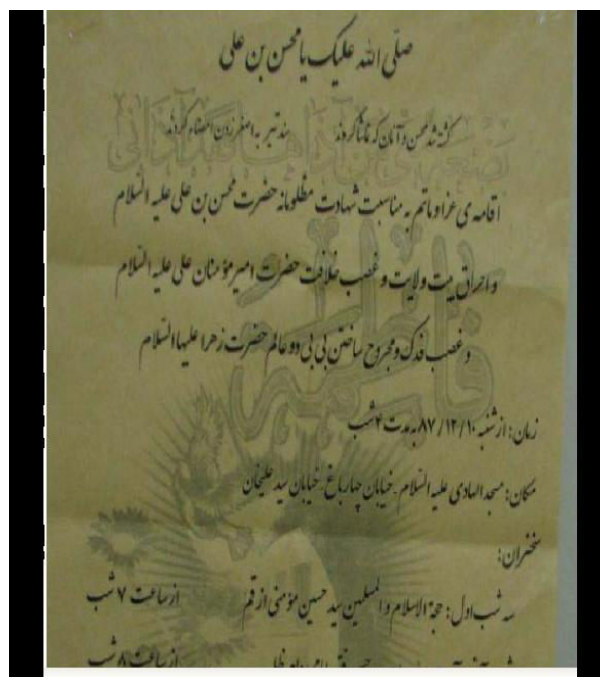 صلّی الله علیک یا محسن بن علی
کشته شد محسن و آنان که تماشا کردند سند تیر به اصغر زدن امضاء کردند
اقامه‌ی عزا و ماتم به مناسبت شهادت مظلومانه حضرت محسن بن علی علیه السّلام
و احراق بیت ولایت و غصب خلافت حضرت امیر مؤمنان علی علیه السّلام
و غصب فدک و مجروح ساختن بی بی دو عالم حضرت زهرا علیها السّلام
زمان: از شنبه ۸۷/۱۲/۱۰ به مدت ۴ شب
مکان: مسجد الهادی علیه السّلام - خیابان چهارباغ - خیابان سید علیخان
سخنران:
سه شب اول: حجة الاسلام و المسلمین سید حسین مؤمنی از قم از ساعت ۷ شب
از ساعت ۸ شب